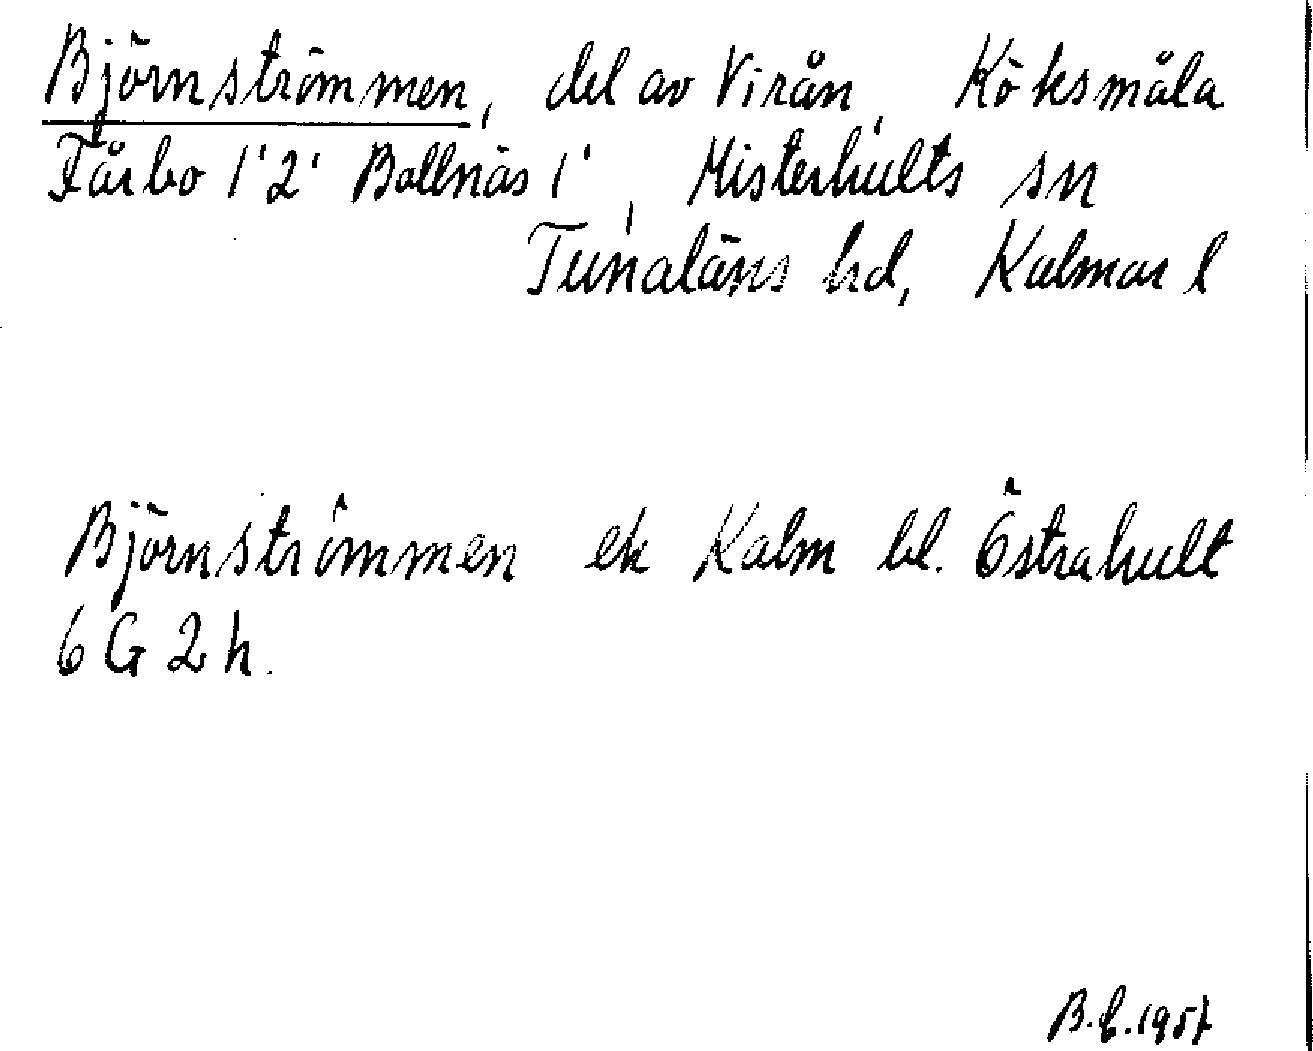 Björnströmmen, del av Virån, Köksmåla
Fårbo 1'2' Bollnäs 1', Misterhults sn
Tunaläns hd, Kalmar l
Björnströmmen ek Kalm bl. Östrahult
6 G 2 h.
B. C. 1957